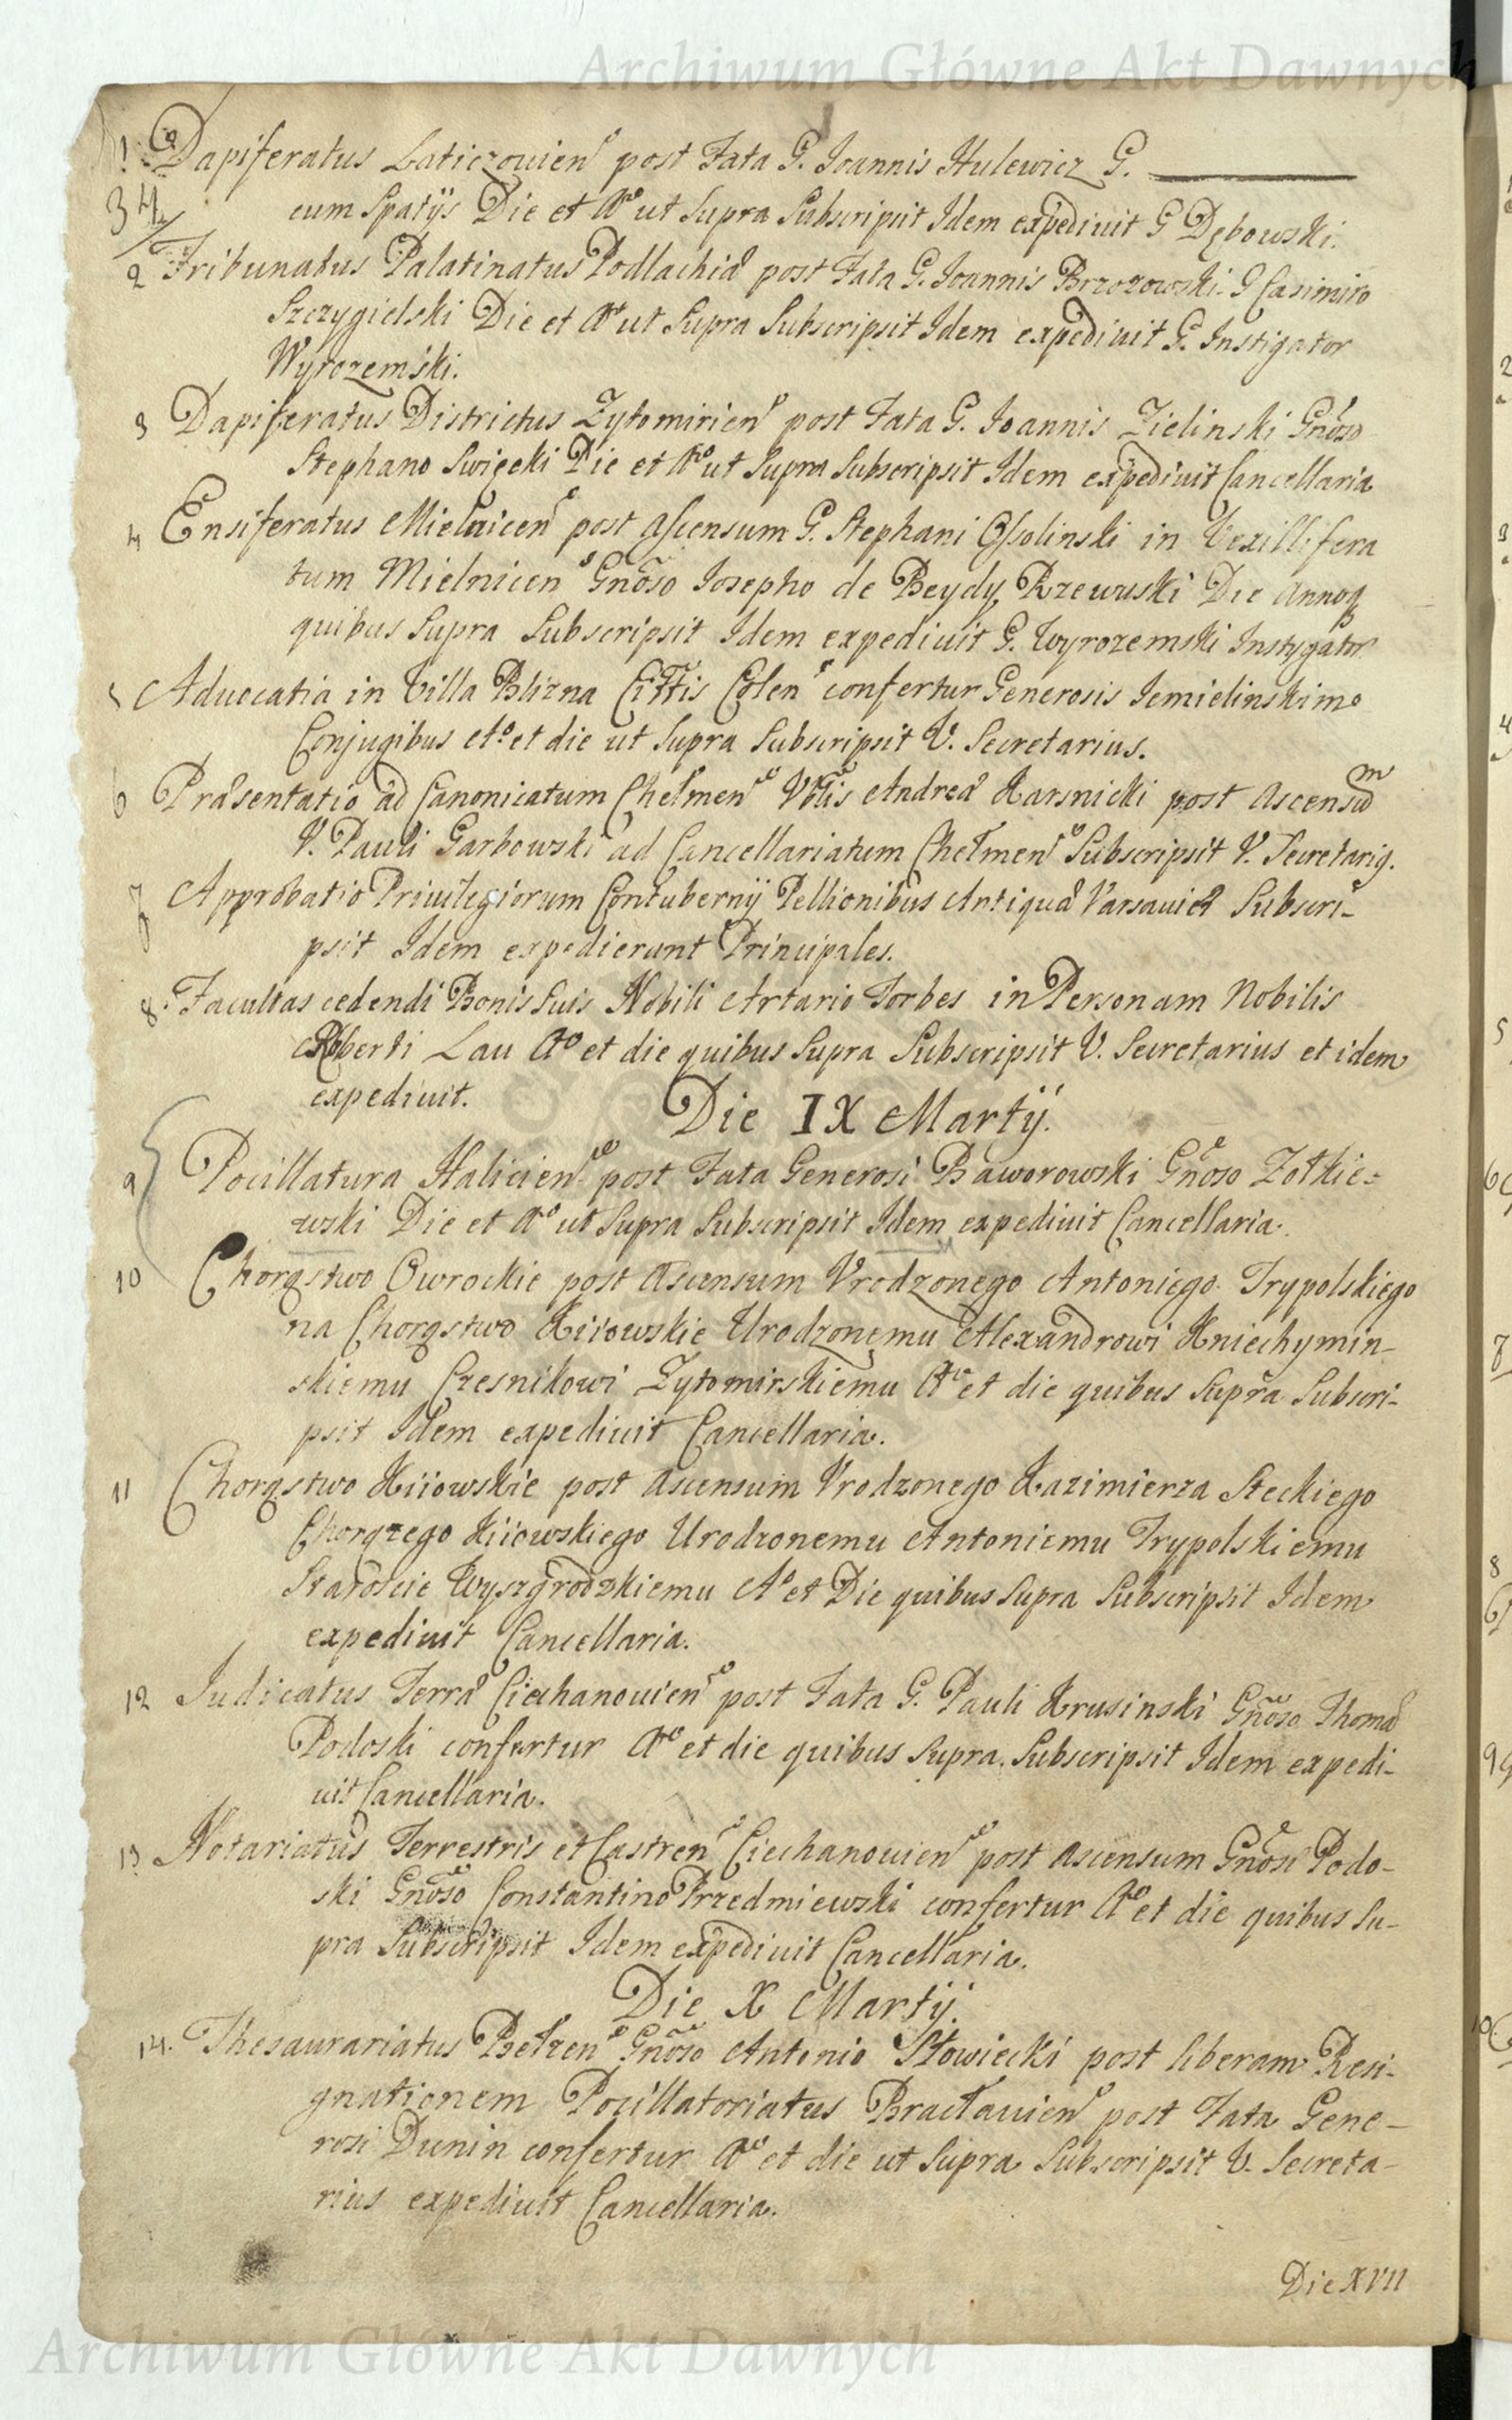 Archiwum Główne Akt Dawnych
1 Dapiferatus Laticzovien post Fata G. Joannis Hulewicz G.
34
cum Spatijs Die et Ao ut Supra Subscripsit Idem expedivit G Dębowski.
2 Tribunatus Palatinatus Podlachiæ post Fata G. Joannis Brzozowski. G Casimiro
Szczygielski Die et Ao ut Supra Subscripsit Idem expedivit G. Instigator
Wyrozemski.
3 Dapiferatus Districtus Zytomirien post Fata G. Joannis Zielinski Gnoso
Stephano Swięcki Die et Ao ut Supra Subscripsit Idem expedivit Cancellaria
4 Ensiferatus Mielnicen post Ascensum G. Stephani Ossolinski in Vexillifera
tum Mielnicen Gnoso Josepho de Beydy Rzewuski Die Annoq
quibus Supra Subscripsit Idem expedivit G. Wyrozemski Instygator
5 Advocatia in Villa Blizna Cittis Colen confertur Generosis Jemielinskimo
Conjugibus eto et die ut Supra Subscripsit V. Secretarius.
6 Præsentatio ad Canonicatum Chełmen Vblis Andreæ Karsnicki post Ascensum
V. Pauli Garbowski ad Cancellariatum Chełmen Subscripsit V. Secretarig.
7 Approbatio Privilegiorum Contubernij Pellionibus Antiquæ Varsaviæ Subscri-
psit Idem expedierunt Principales.
8. Facultas cedendi Bonis Suis Nobili Artario Forbes in Personam Nobilis
Roberti Lau Ao et die quibus Supra Subscripsit V. Secretarius et idem
expedivit.
Die IX Martij.
9 Pocillatura Halicien post Fata Generosi Baworowski Gnoso Zołkie=
wski Die et Ao ut Supra Subscripsit Idem expedivit Cancellaria.
10 Chorąstwo Owrockie post Ascensum Vrodzonego Antoniego Trypolskiego
na Chorąstwo Kiiowskie Urodzonemu Alexandrowi Kniechymin-
skiemu Czesnikowi Zytomirskiemu Ao et die quibus Supra Subscri-
psit Idem expedivit Cancellaria.
11 Chorąstwo Kiiowskie post Ascensum Vrodzonego Kazimierza Steckiego
Chorązego Kiiowskiego Urodzonemu Antoniemu Trypolskiemu
Staroscie Wyszgrodzkiemu Ao et Die quibus Supra Subscripsit Idem
expedivit Cancellaria.
12 Judicatus Terræ Ciechanovien post Fata G. Pauli Krusinski Gnoso Thomæ
Podoski confertur Ao et die quibus Supra. Subscripsit Idem expedi-
vit Cancellaria.
13 Notariatus Terrestris et Castren Ciechanovien post Ascensum Gnosi Podo-
ski Gnoso Constantino Przedmiewski confertur Ao et die quibus Su-
pra Subscripsit Idem expedivit Cancellaria.
Die X Martij.
14. Thesaurariatus Bełzen Gnoso Antonio Słowiecki post liberam Resi-
gnationem Pocillatoriatus Bracłavien post Fata Gene-
rosi Dunin confertur Ao et die ut Supra Subscripsit V. Secreta-
rius expedivit Cancellaria.
Die XVII
Archiwum Główne Akt Dawnych